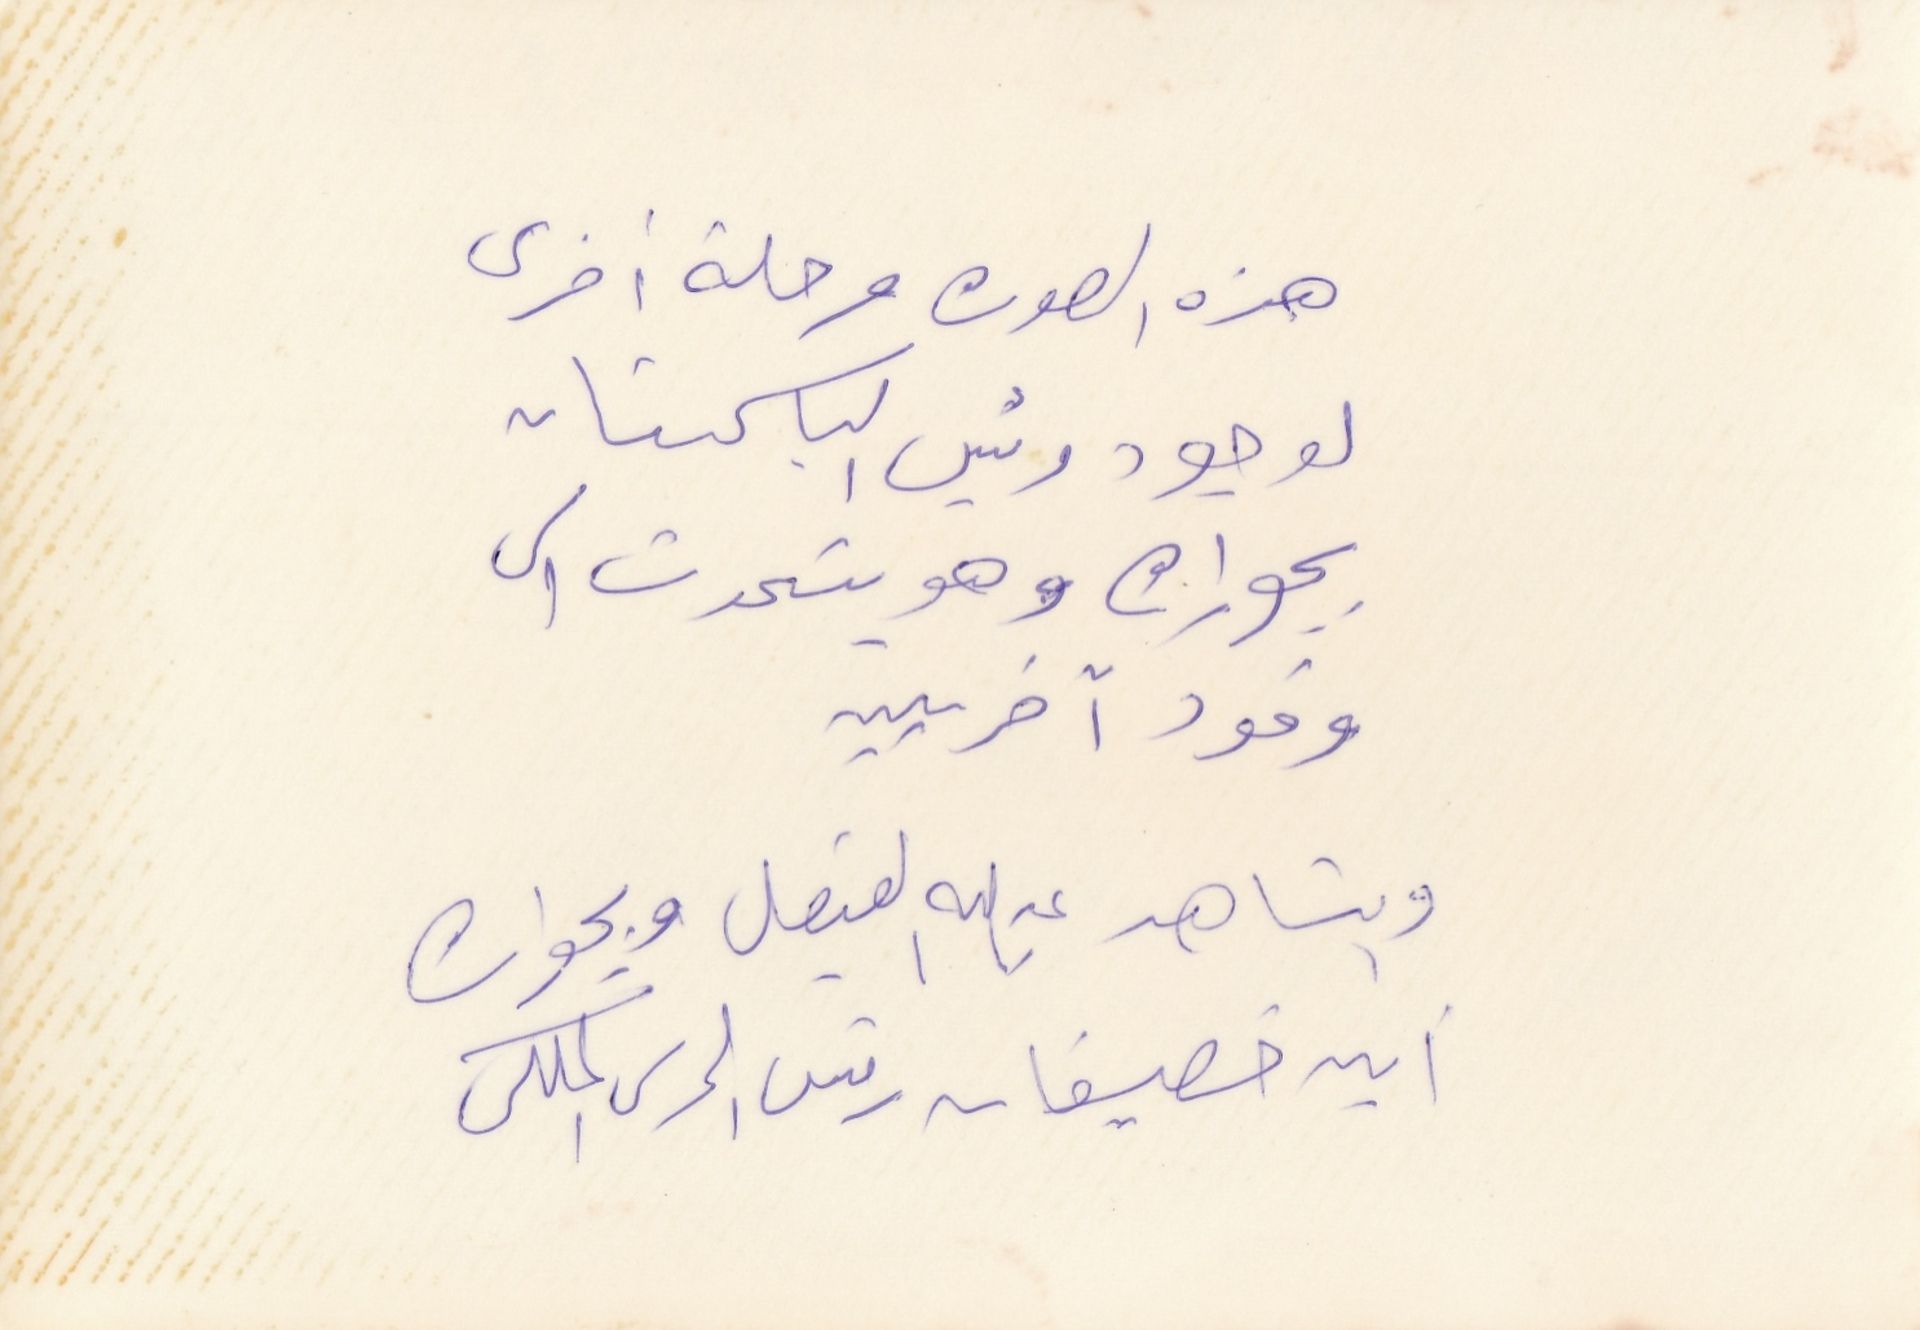 هذه الصورة مرحلة أخرى
لوجود رئيس الباكستان
بجواره وهو يتحدث الى
وفود آخريين
ويشاهد عبدالله الفيصل وبجواره
أيمن خصيفان رئيس الحرس الملكى